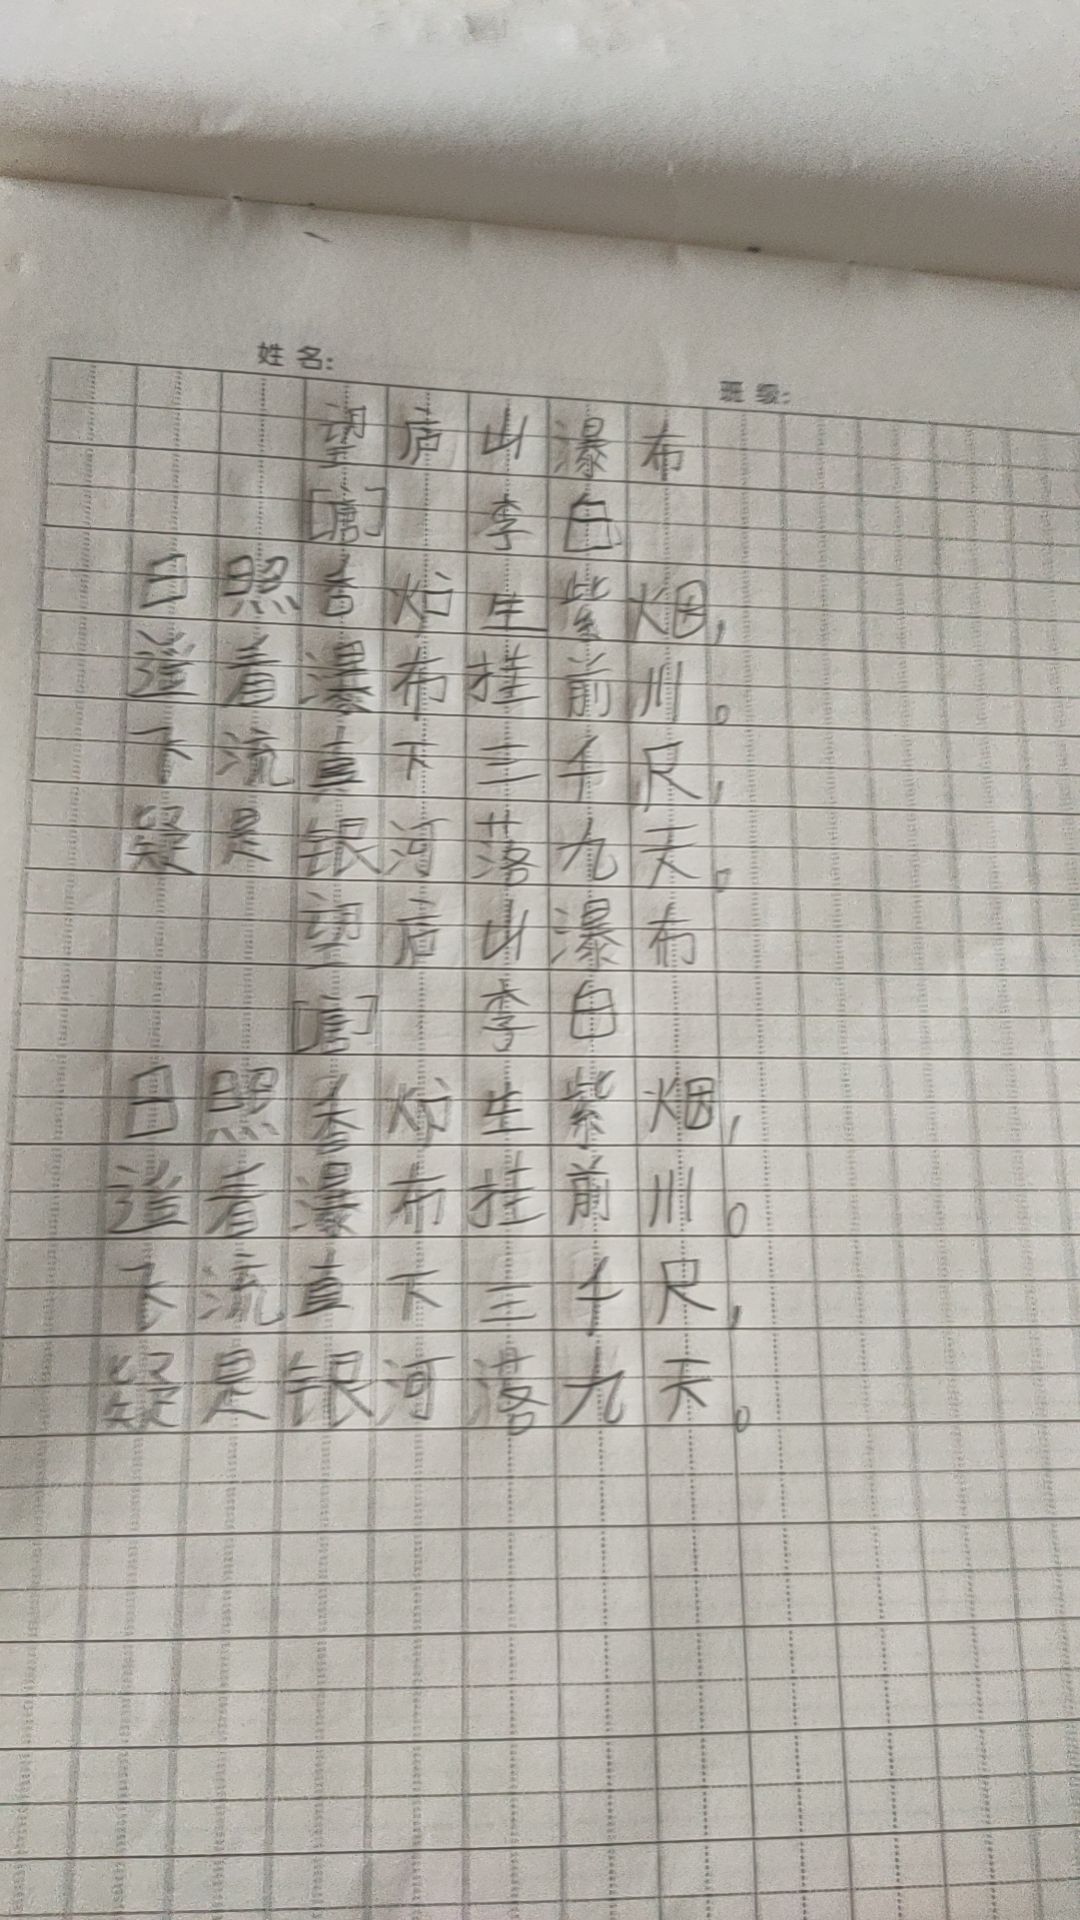 姓名： 班级：
望庐山瀑布
[唐] 李白
日照香炉生紫烟，
遥看瀑布挂前川。
飞流直下三千尺，
疑是银河落九天。
望庐山瀑布
[唐] 李白
日照香炉生紫烟，
遥看瀑布挂前川。
飞流直下三千尺，
疑是银河落九天。